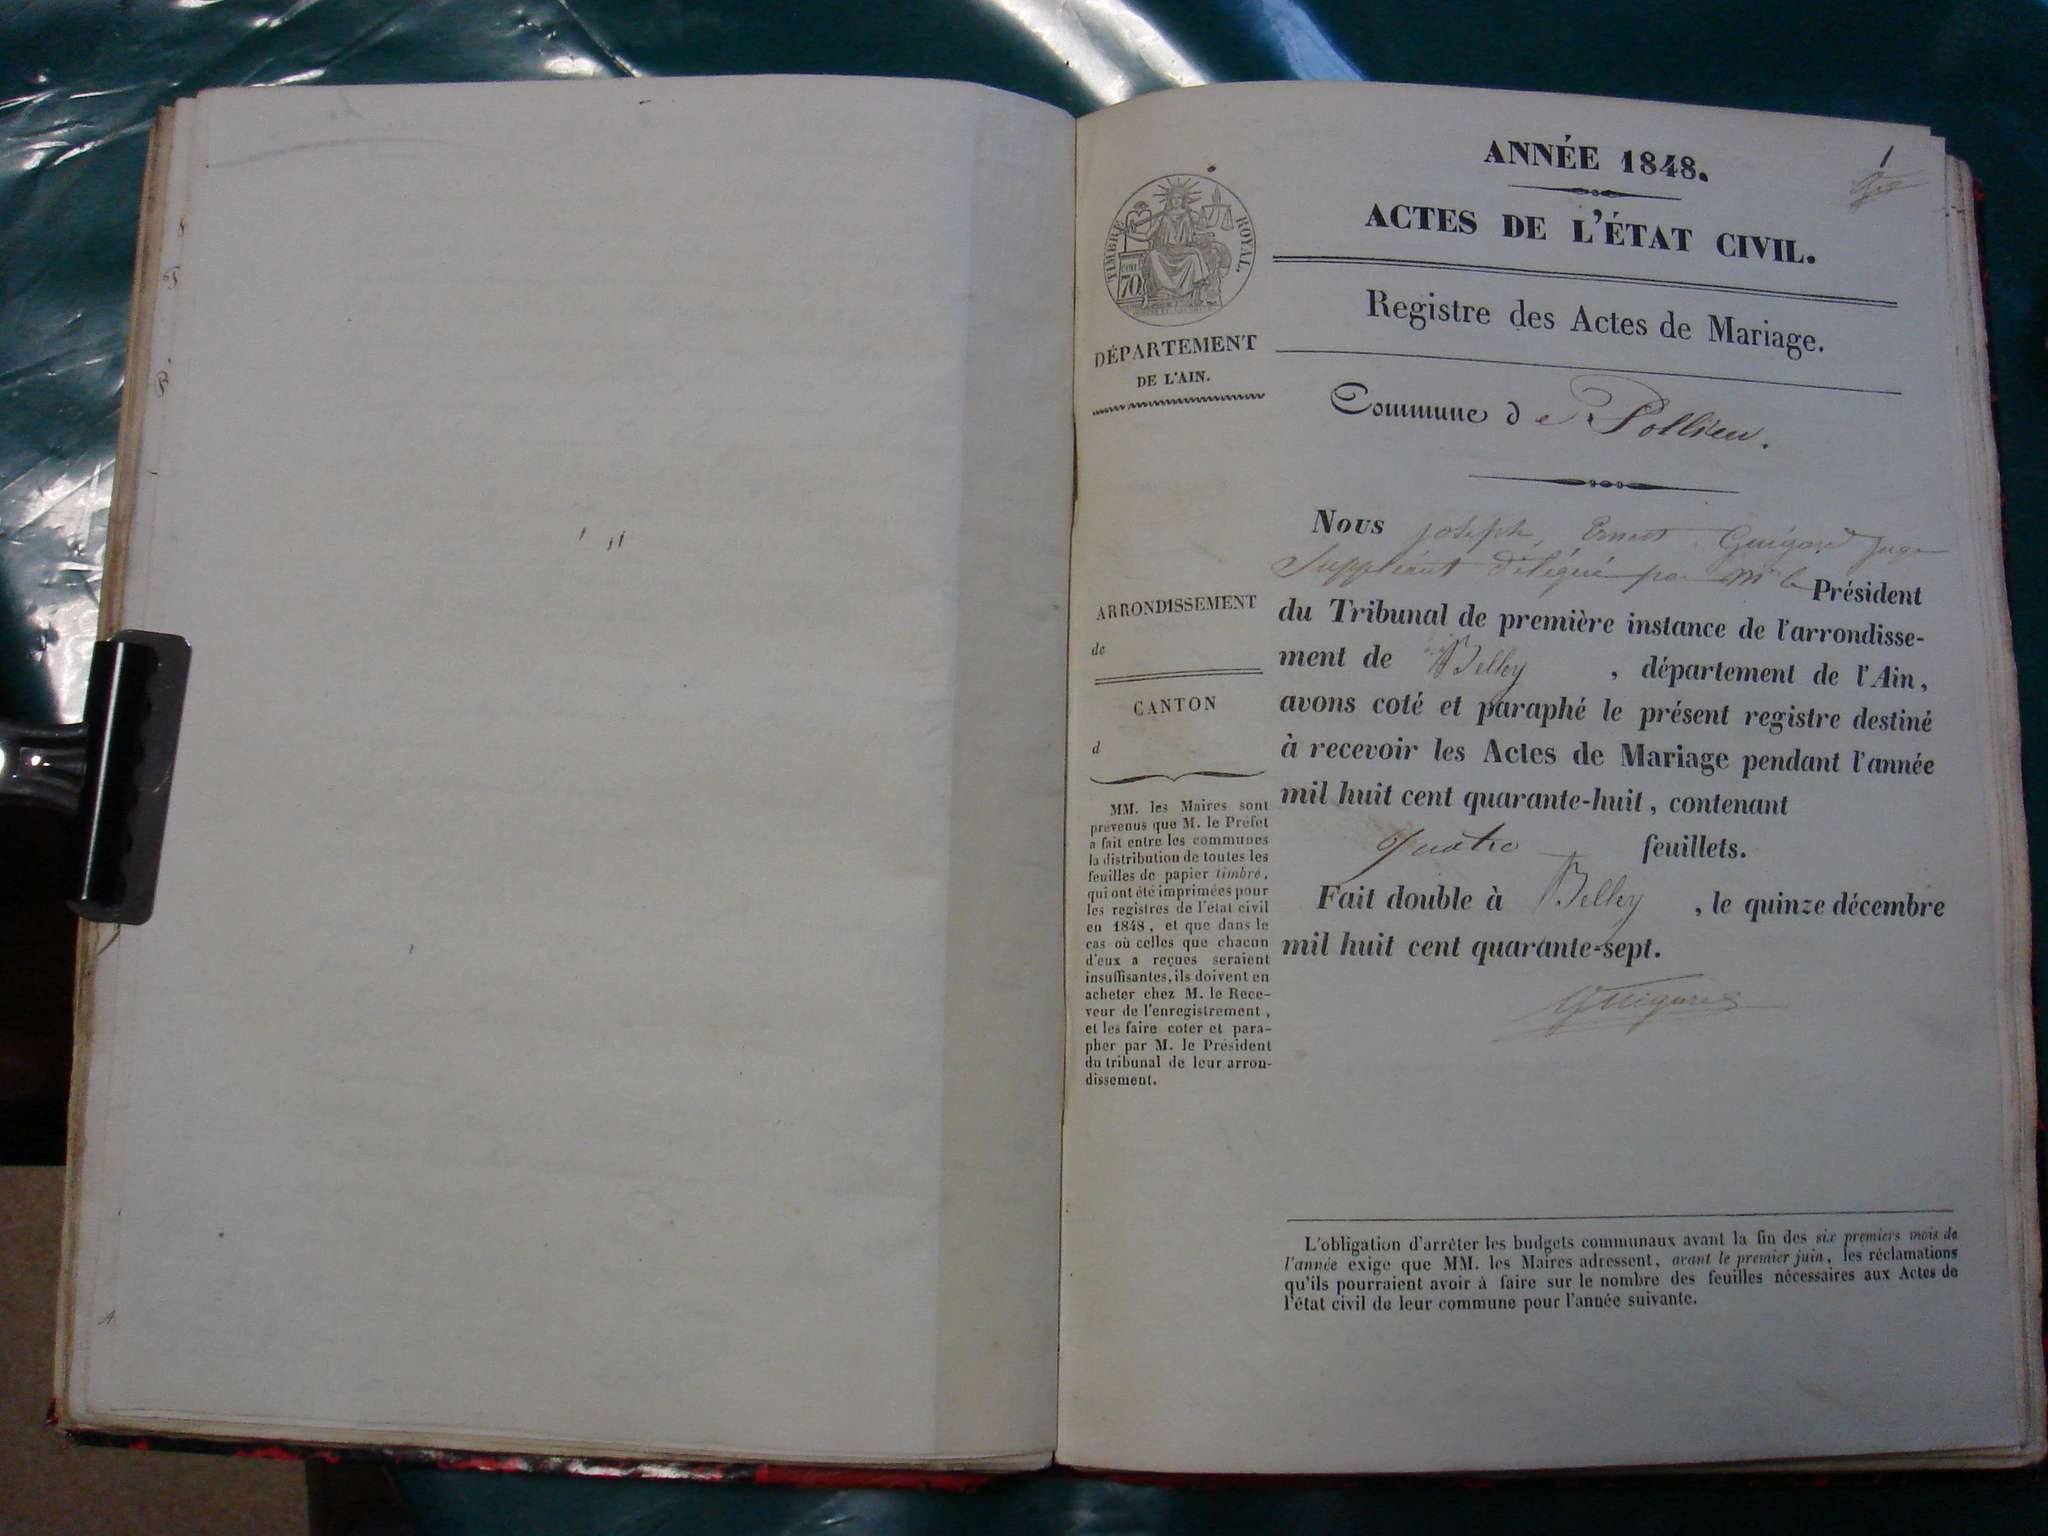 ANNÉE 1848.
1
ACTES DE L'ÉTAT CIVIL.
Registre des Actes de Mariage.
Commune de Pollieu.
TIMBRE ROYAL.
70
DÉPARTEMENT
DE L'AIN.
ARRONDISSEMENT
de
CANTON
d
MM. les Maires sont
prévenus que M. le Préfet
a fait entre les communes
la distribution de toutes les
feuilles de papier timbré,
qui ont été imprimées pour
les registres de l'état civil
en 1848, et que dans le
cas où celles que chacun
d'eux a reçues seraient
insuffisantes, ils doivent en
acheter chez M. le Rece-
veur de l'enregistrement,
et les faire coter et para-
pher par M. le Président
du tribunal de leur arron-
dissement.
Nous joseph, Ernest Guigard juge
Suppléant délégué par Mr le Président
du Tribunal de première instance de l'arrondisse-
ment de Belley, département de l'Ain,
avons coté et paraphé le présent registre destiné
à recevoir les Actes de Mariage pendant l'année
mil huit cent quarante-huit, contenant
quatre feuillets.
Fait double à Belley, le quinze décembre
mil huit cent quarante-sept.
Guigard
L'obligation d'arrêter les budgets communaux avant la fin des six premiers mois de
l'année exige que MM. les Maires adressent, avant le premier juin, les réclamations
qu'ils pourraient avoir à faire sur le nombre des feuilles nécessaires aux Actes de
l'état civil de leur commune pour l'année suivante.